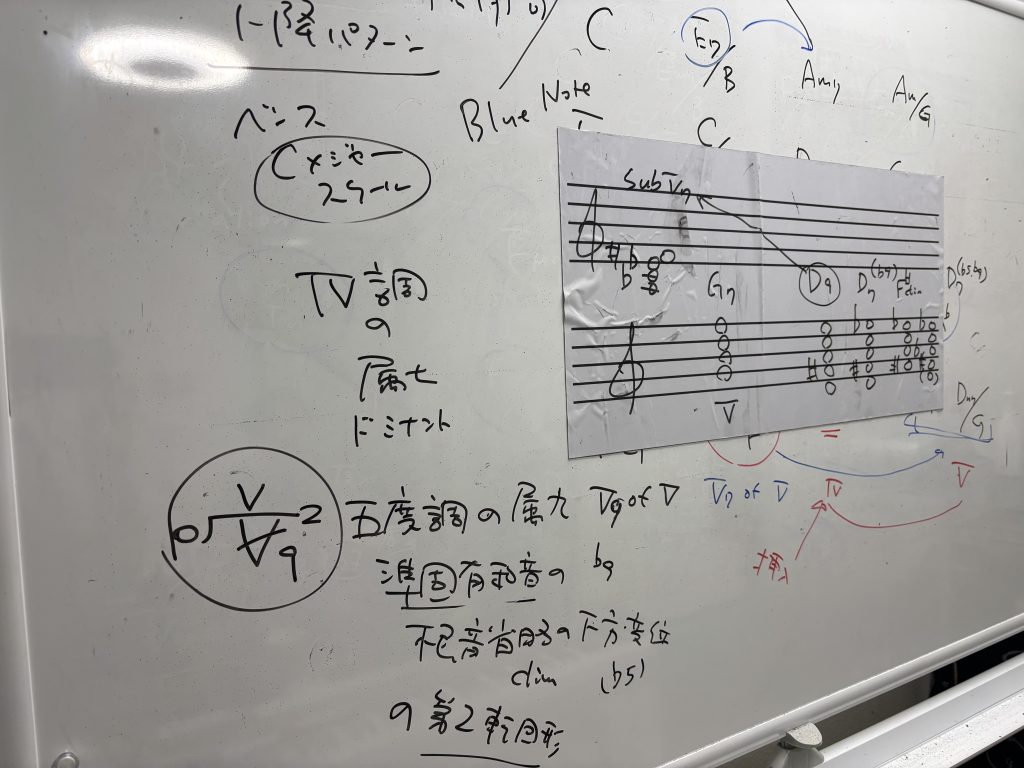 下降パターン
C
E7
/B
Am7
Am/G
Blue Note
ベース
Cメジャー
スケール
C/
subV7
G7
D9
D7(b9)
F#dim
D7(b5,b9)
V
IV調
の
属七
ドミナント
Dm/G
V7 of V
IV
V
挿入
V
V9
2
五度調の属九 V9 of V
準固有和音の b9
根音省略の下方変位
dim (b5)
の第2転回形